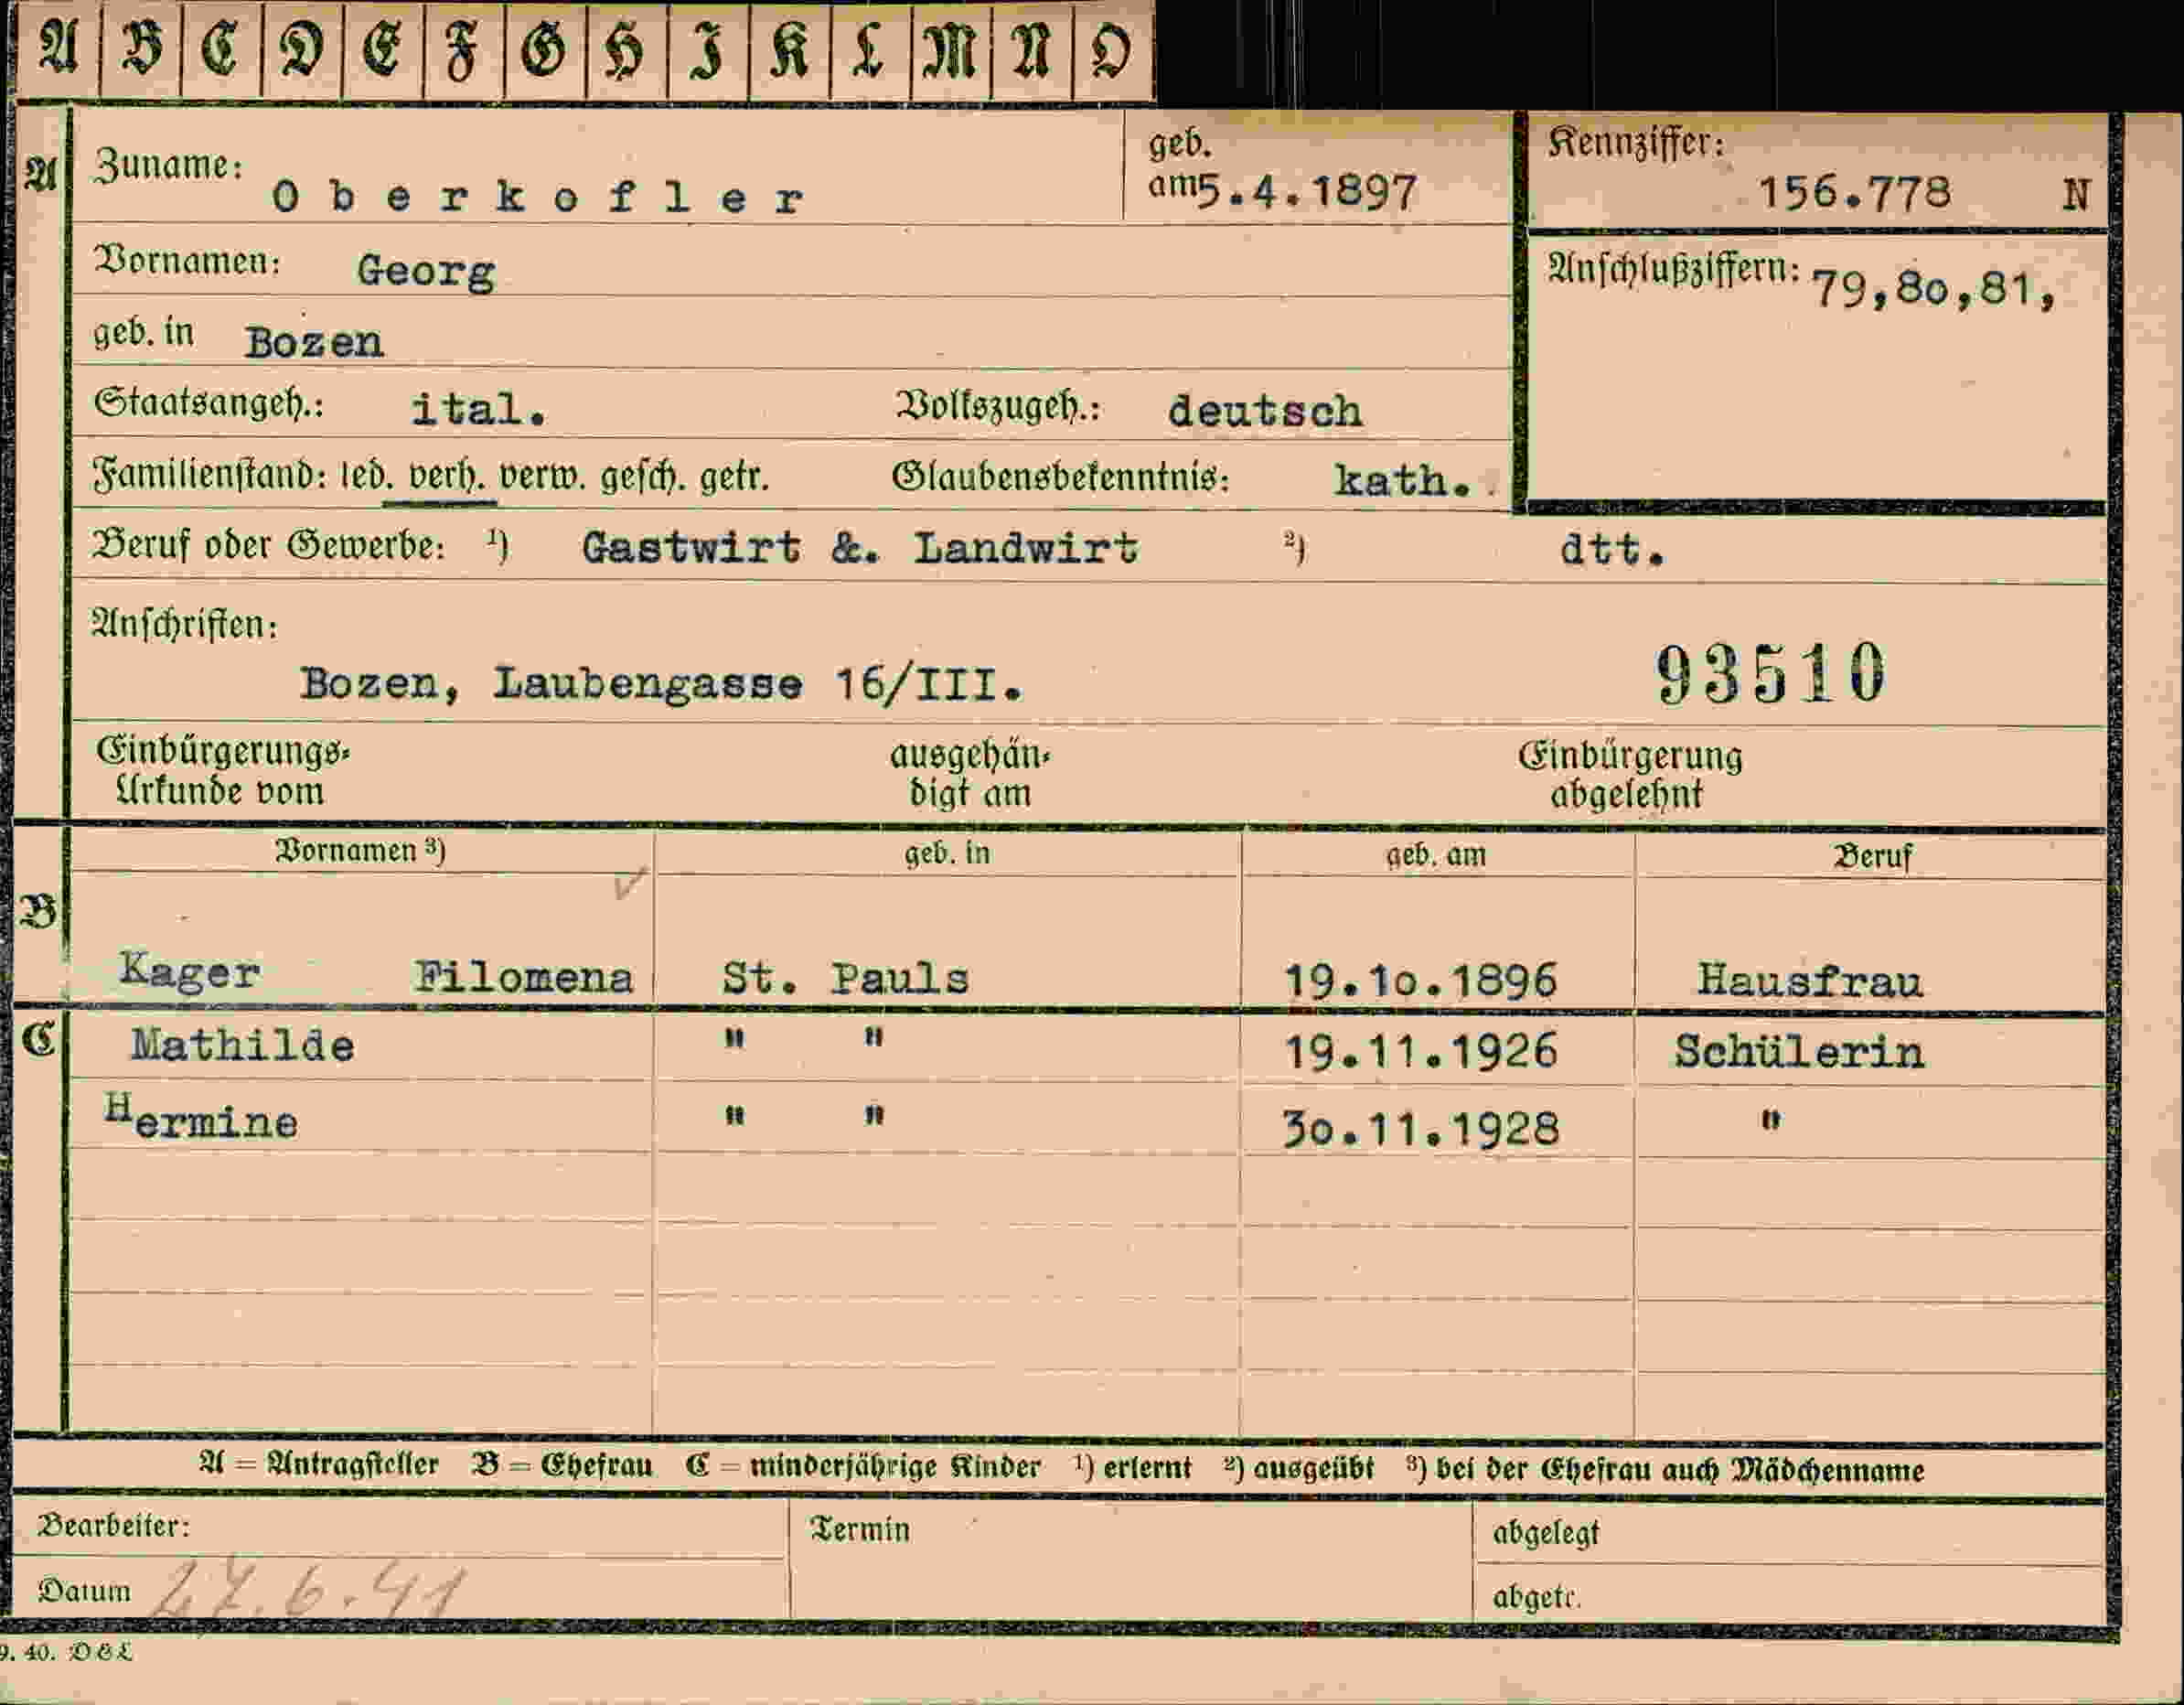 A B C D E F G H I K L M N O
A Zuname: Oberkofler geb. am 5.4.1897 Kennziffer: 156.778 N
Vornamen: Georg Anschlußziffern: 79,80,81,
geb. in Bozen
Staatsangeh.: ital. Volkszugeh.: deutsch
Familienstand: led. verh. verw. gesch. getr. Glaubensbekenntnis: kath.
Beruf oder Gewerbe: ¹) Gastwirt &. Landwirt ²) dtt.
Anschriften:
Bozen, Laubengasse 16/III. 93510
Einbürgerungs- ausgehän- Einbürgerung
Urkunde vom digt am abgelehnt
Vornamen ³) geb. in geb. am Beruf
B
Kager Filomena St. Pauls 19.10.1896 Hausfrau
C Mathilde " " 19.11.1926 Schülerin
Hermine " " 30.11.1928 "
A = Antragsteller B = Ehefrau C = minderjährige Kinder ¹) erlernt ²) ausgeübt ³) bei der Ehefrau auch Mädchenname
Bearbeiter: Termin abgelegt
Datum 27.6.41 abgetr.
9. 40. DEL